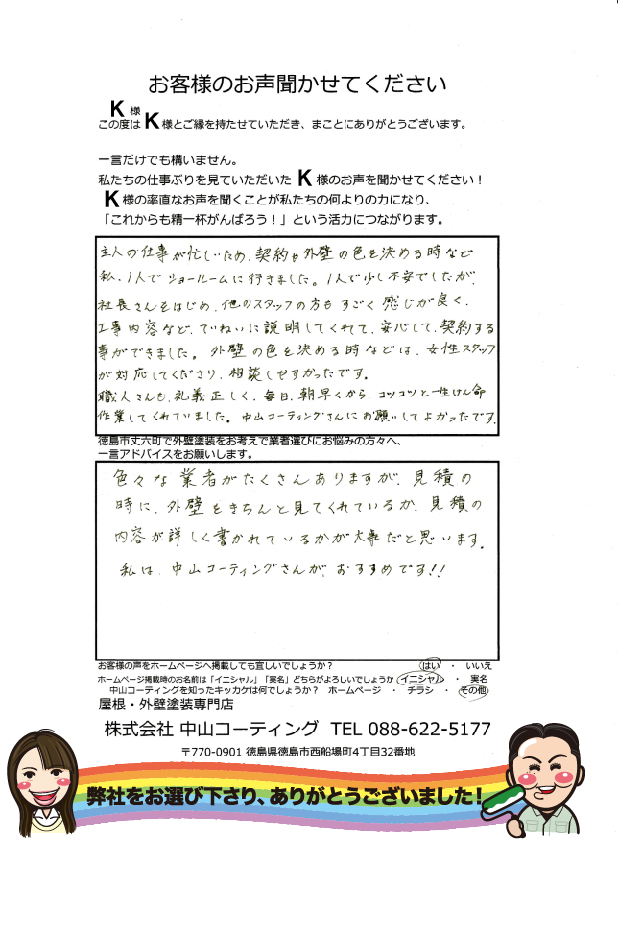 お客様のお声聞かせてください
K 様
この度は K 様とご縁を持たせていただき、まことにありがとうございます。
一言だけでも構いません。
私たちの仕事ぶりを見ていただいた K 様のお声を聞かせてください！
K 様の率直なお声を聞くことが私たちの何よりの力になり、
「これからも精一杯がんばろう！」という活力につながります。
主人の仕事が忙しいため、契約や外壁の色を決める時など
私、1人でショールームに行きました。1人で少し不安でしたが、
社長さんをはじめ、他のスタッフの方もすごく感じが良く、
工事内容など、ていねいに説明してくれて、安心して、契約する
事ができました。外壁の色を決める時などは、女性スタッフ
が対応してくださり、相談しやすかったです。
職人さんも、礼義正しく、毎日、朝早くからコツコツと一生けん命
作業してくれていました。中山コーティングさんにお願いしてよかったです。
徳島市丈六町で外壁塗装をお考えで業者選びにお悩みの方々へ、
一言アドバイスをお願いします。
色々な業者がたくさんありますが、見積の
時に、外壁をきちんと見てくれているか、見積の
内容が詳しく書かれているかが大事だと思います。
私は、中山コーティングさんが、おすすめです!!
お客様の声をホームページへ掲載しても宜しいでしょうか？ はい ・ いいえ
ホームページ掲載時のお名前は「イニシャル」「実名」どちらがよろしいでしょうか イニシャル ・ 実名
中山コーティングを知ったキッカケは何でしょうか？ ホームページ ・ チラシ ・ その他
屋根・外壁塗装専門店
株式会社 中山コーティング TEL 088-622-5177
〒770-0901 徳島県徳島市西船場町4丁目32番地
弊社をお選び下さり、ありがとうございました！